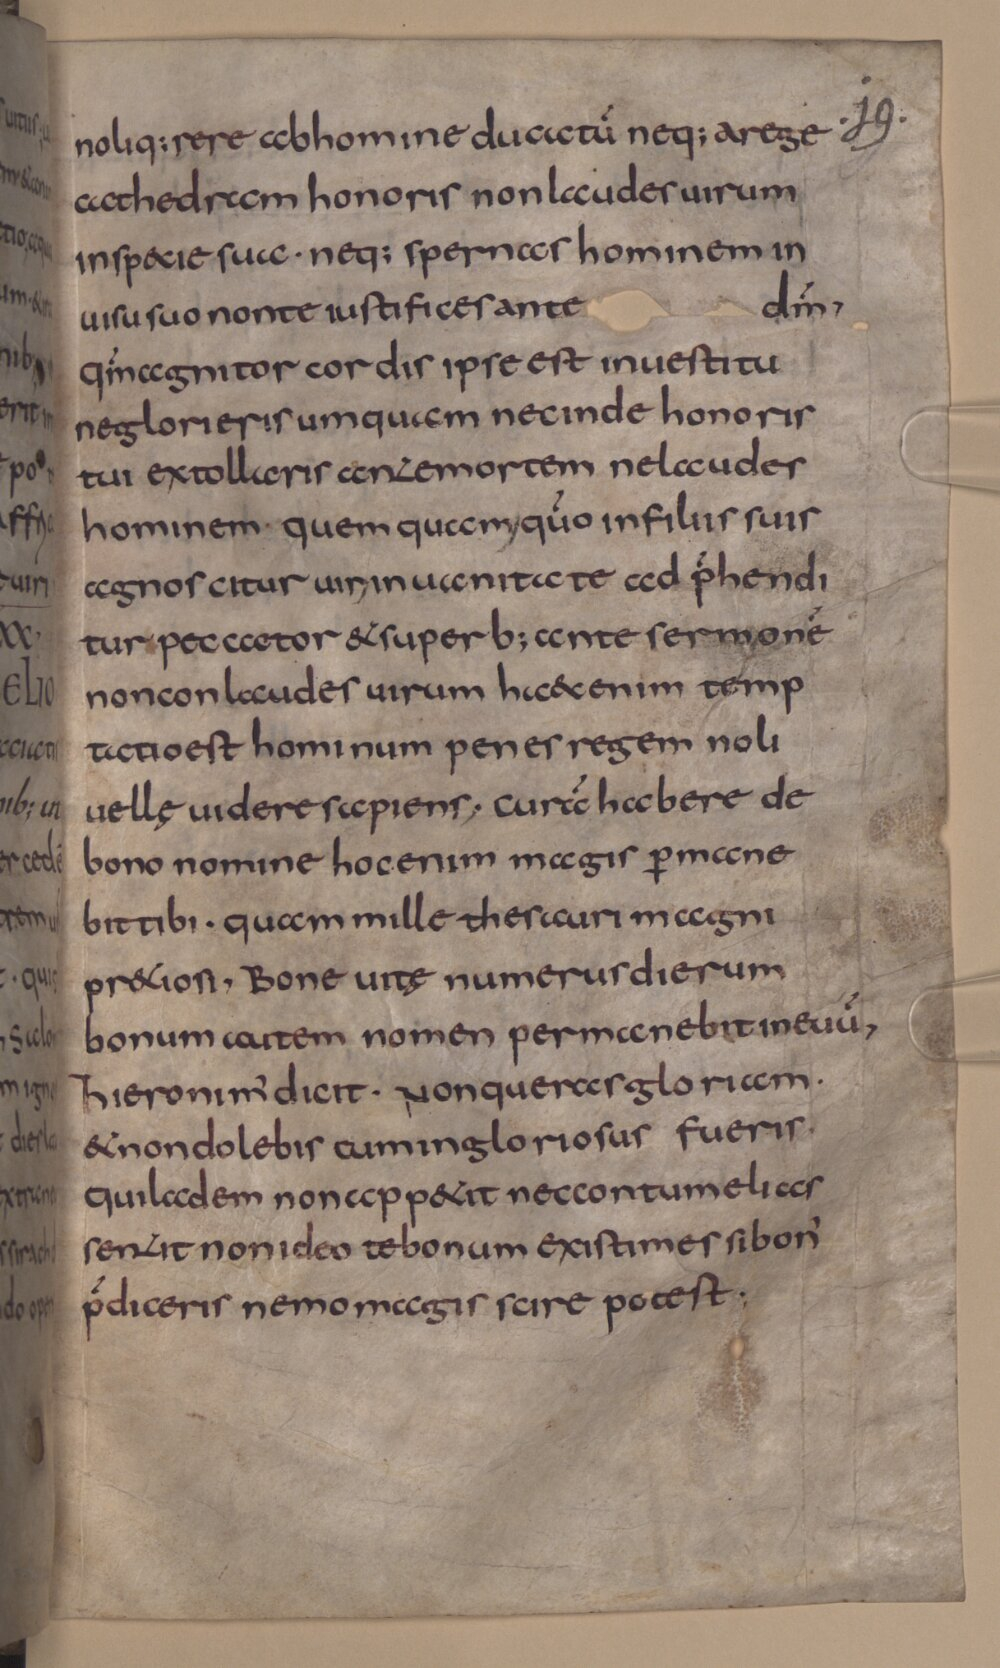 noliq;rere abhomine ducatū neq; arege ·19·
cathedram honoris nonlaudes uirum
inspecie sua · neq; spernas hominem in
uisu suo nonte iustifices ante dm̄,
qm̄agnitor cordis ipse est inuestitu
neglorieris umquam necinde honoris
tui extollaris antemortem nelaudes
hominem quem quam, quō infiliis suis
agnoscitur uir, inuanitate ad p̄hendi
tur peccator &superb; ante sermonē
nonconlaudes uirum hac&enim temp
tatioest hominum penes regem noli
uellę uidere sapiens, curā habere de
bono nomine hoc enim magis ꝑmane
bit tibi · quam mille thesauri magni
pr&iosi, Bone uitę numerus dierum
bonum autem nomen permanebit ineuū,
hieronim' dicit · Nonqueras gloriam ·
&nondolebis cumingloriosus fueris ·
quilaudem nonapp&it neccontumelias
sentit nonideo tebonum existimes sibon'
p̄diceris nemomagis scire potest ·